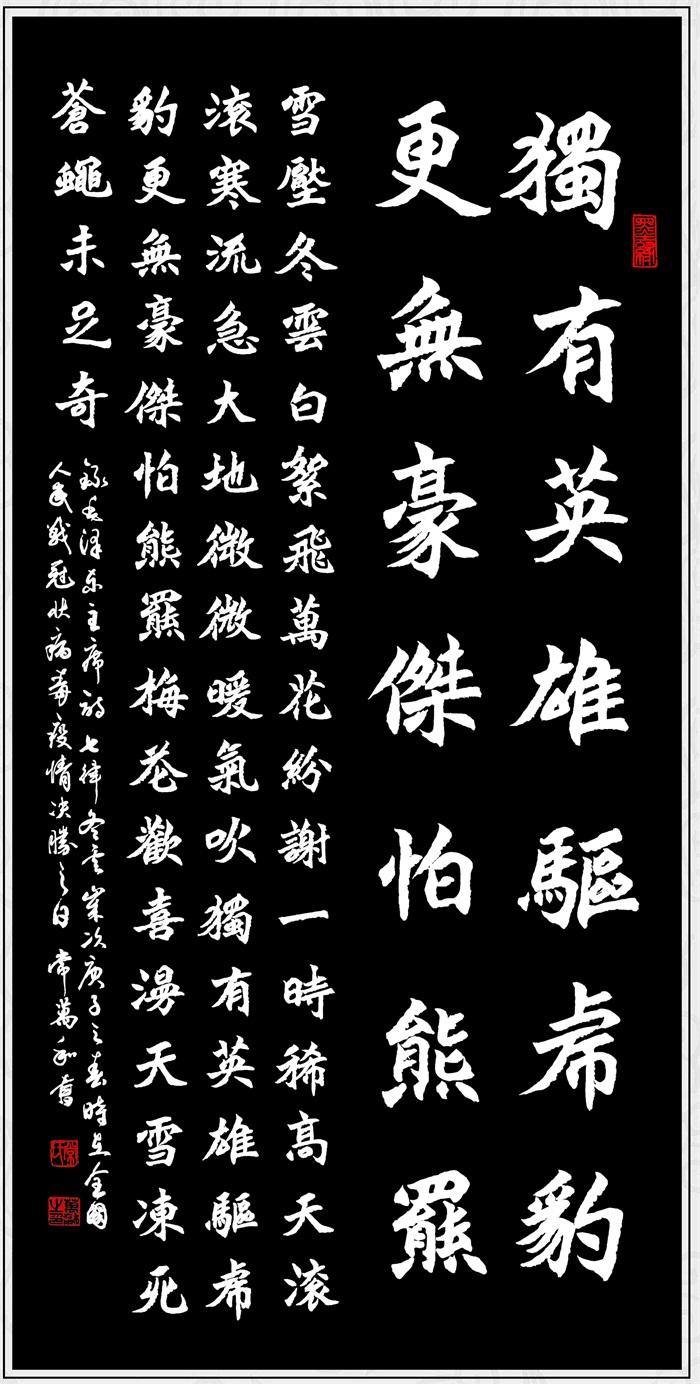 獨有英雄驅虎豹
更無豪傑怕熊羆
雪壓冬雲白絮飛萬花紛謝一時稀高天滾
滾寒流急大地微微暖氣吹獨有英雄驅虎
豹更無豪傑怕熊羆梅花歡喜漫天雪凍死
蒼蠅未足奇
錄毛澤东主席詩七律冬云歲次庚子之春時值全國
人民戰冠狀病毒疫情决勝之日常萬和書